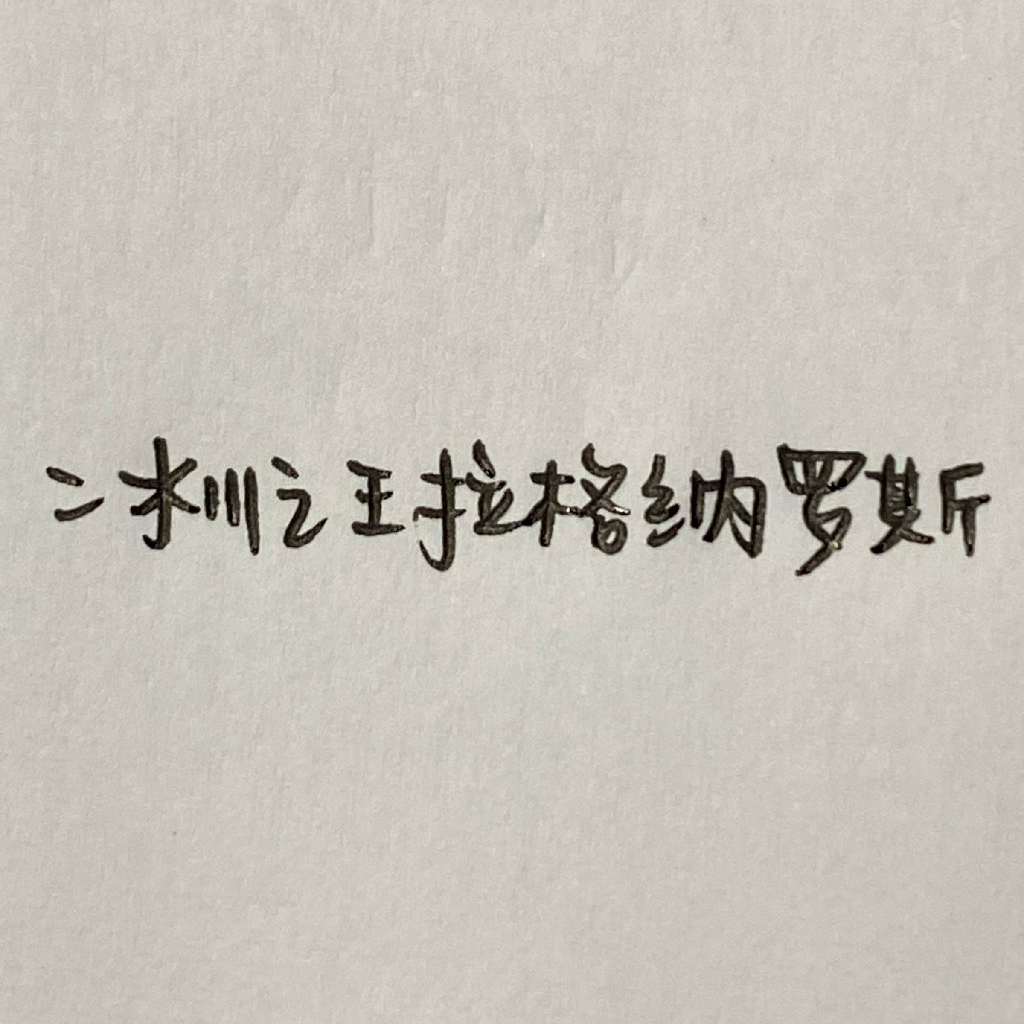 冰川之王拉格纳罗斯